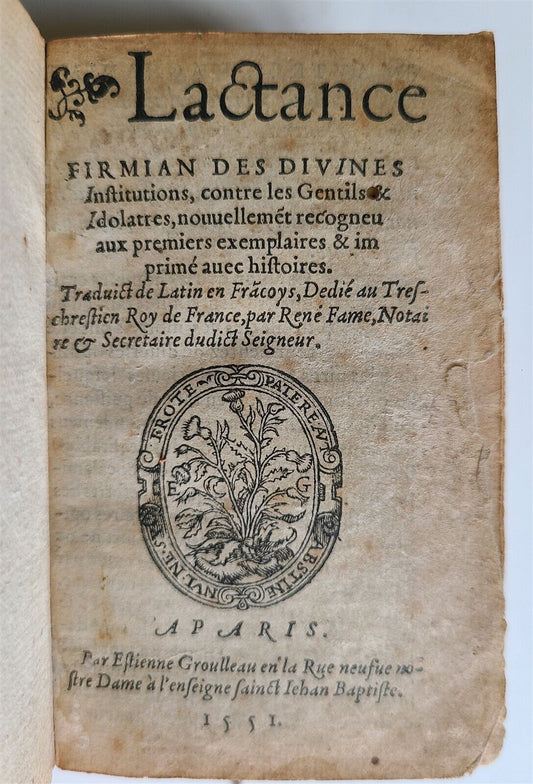 Lactance
FIRMIAN DES DIVINES
Inſtitutions, contre les Gentils &
Idolatres, nouuellemēt recogneu
aux premiers exemplaires & im
primé auec hiſtoires.
Traduict de Latin en Frācoys, Dedié au Treſ-
chreſtien Roy de France, par René Fame, Notai
re & Secretaire dudict Seigneur.
PATERE AVT ABSTINE
NVL NE S'Y FROTE
E G
A PARIS.
Par Eſtienne Groulleau en la Rue neufue no-
ſtre Dame à l'enſeigne ſainct Iehan Baptiſte.
1551.